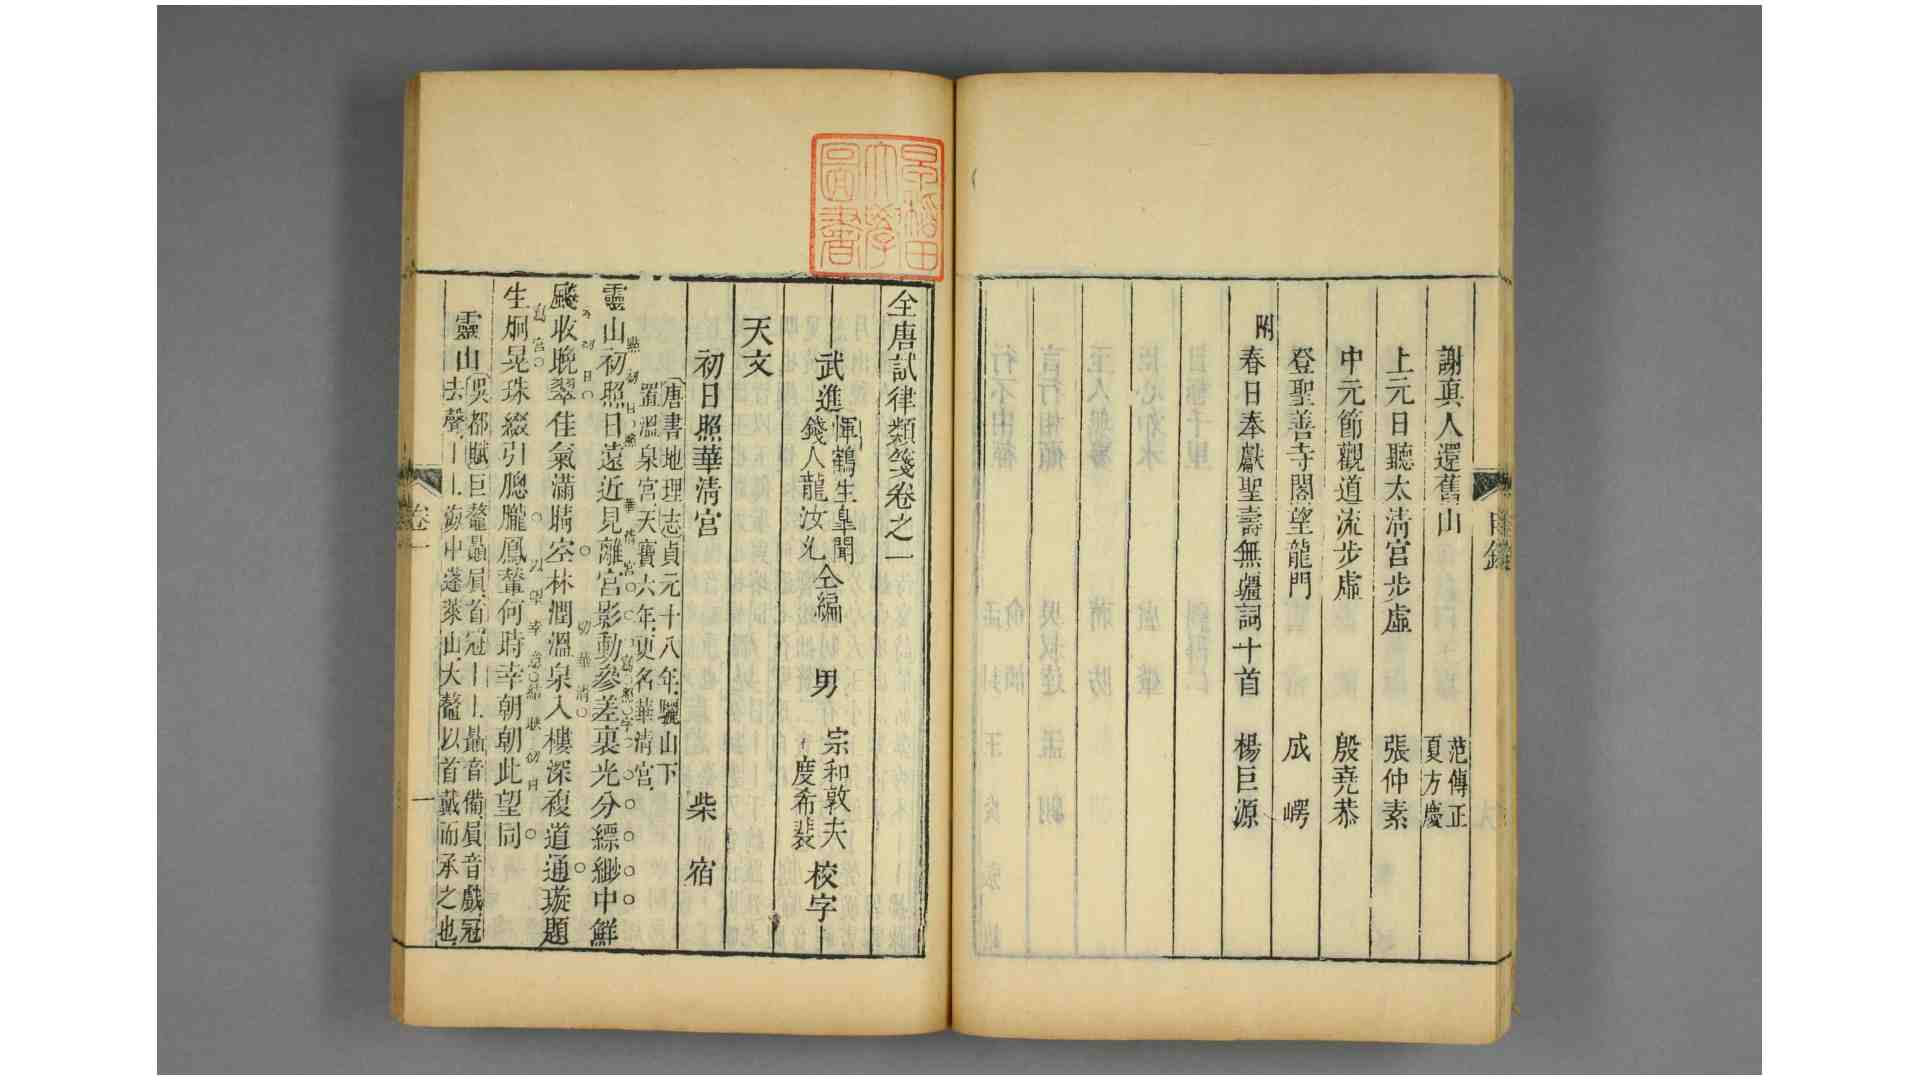 謝真人還舊山 范傳正 夏方慶
上元日聽太清宮步虛 張仲素
中元節觀道流步虛 殷堯恭
登聖善寺閣望龍門 成㟧
附
春日奉獻聖壽無疆詞十首 楊巨源
早稻田
大學
圖書
全唐試律類箋卷之一
武進
惲鶴生皐聞
錢人龍汝允
仝編
男
宗和敦夫
度希裴
校字
天文
初日照華清宮 柴宿
唐書地理志貞元十八年驪山下
置溫泉宮天寶六年更名華清宮
靈山初照日遠近見離宮影動參差裏光分縹緲中鮮
飈收晚翠佳氣滿晴空林潤溫泉入樓深複道通璇題
生炯晃珠綴引朧朧鳳輦何時幸朝朝此望同
靈山
吳都賦巨鼇贔屓首冠
上贔音備屓音戲冠
去聲
海中蓬萊山大鼇以首戴而承之也
卷一
一